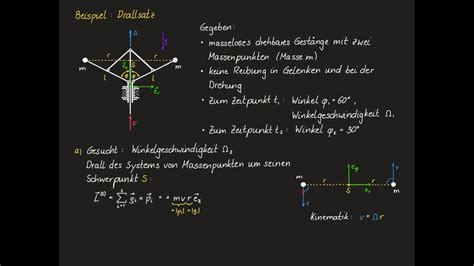 Beispiel: Drallsatz
Gegeben:
• masseloses drehbares Gestänge mit zwei
Massenpunkten (Masse m)
• keine Reibung in Gelenken und bei der
Drehung
• Zum Zeitpunkt t₁: Winkel φ₁ = 60°,
Winkelgeschwindigkeit Ω₁
• Zum Zeitpunkt t₂: Winkel φ₂ = 30°
Ω
g
r r
m m
S
φ φ
l l
F
a) Gesucht: Winkelgeschwindigkeit Ω₂
Drall des Systems von Massenpunkten um seinen
Schwerpunkt S:
m r S r m
v v
Kinematik: v = Ωr